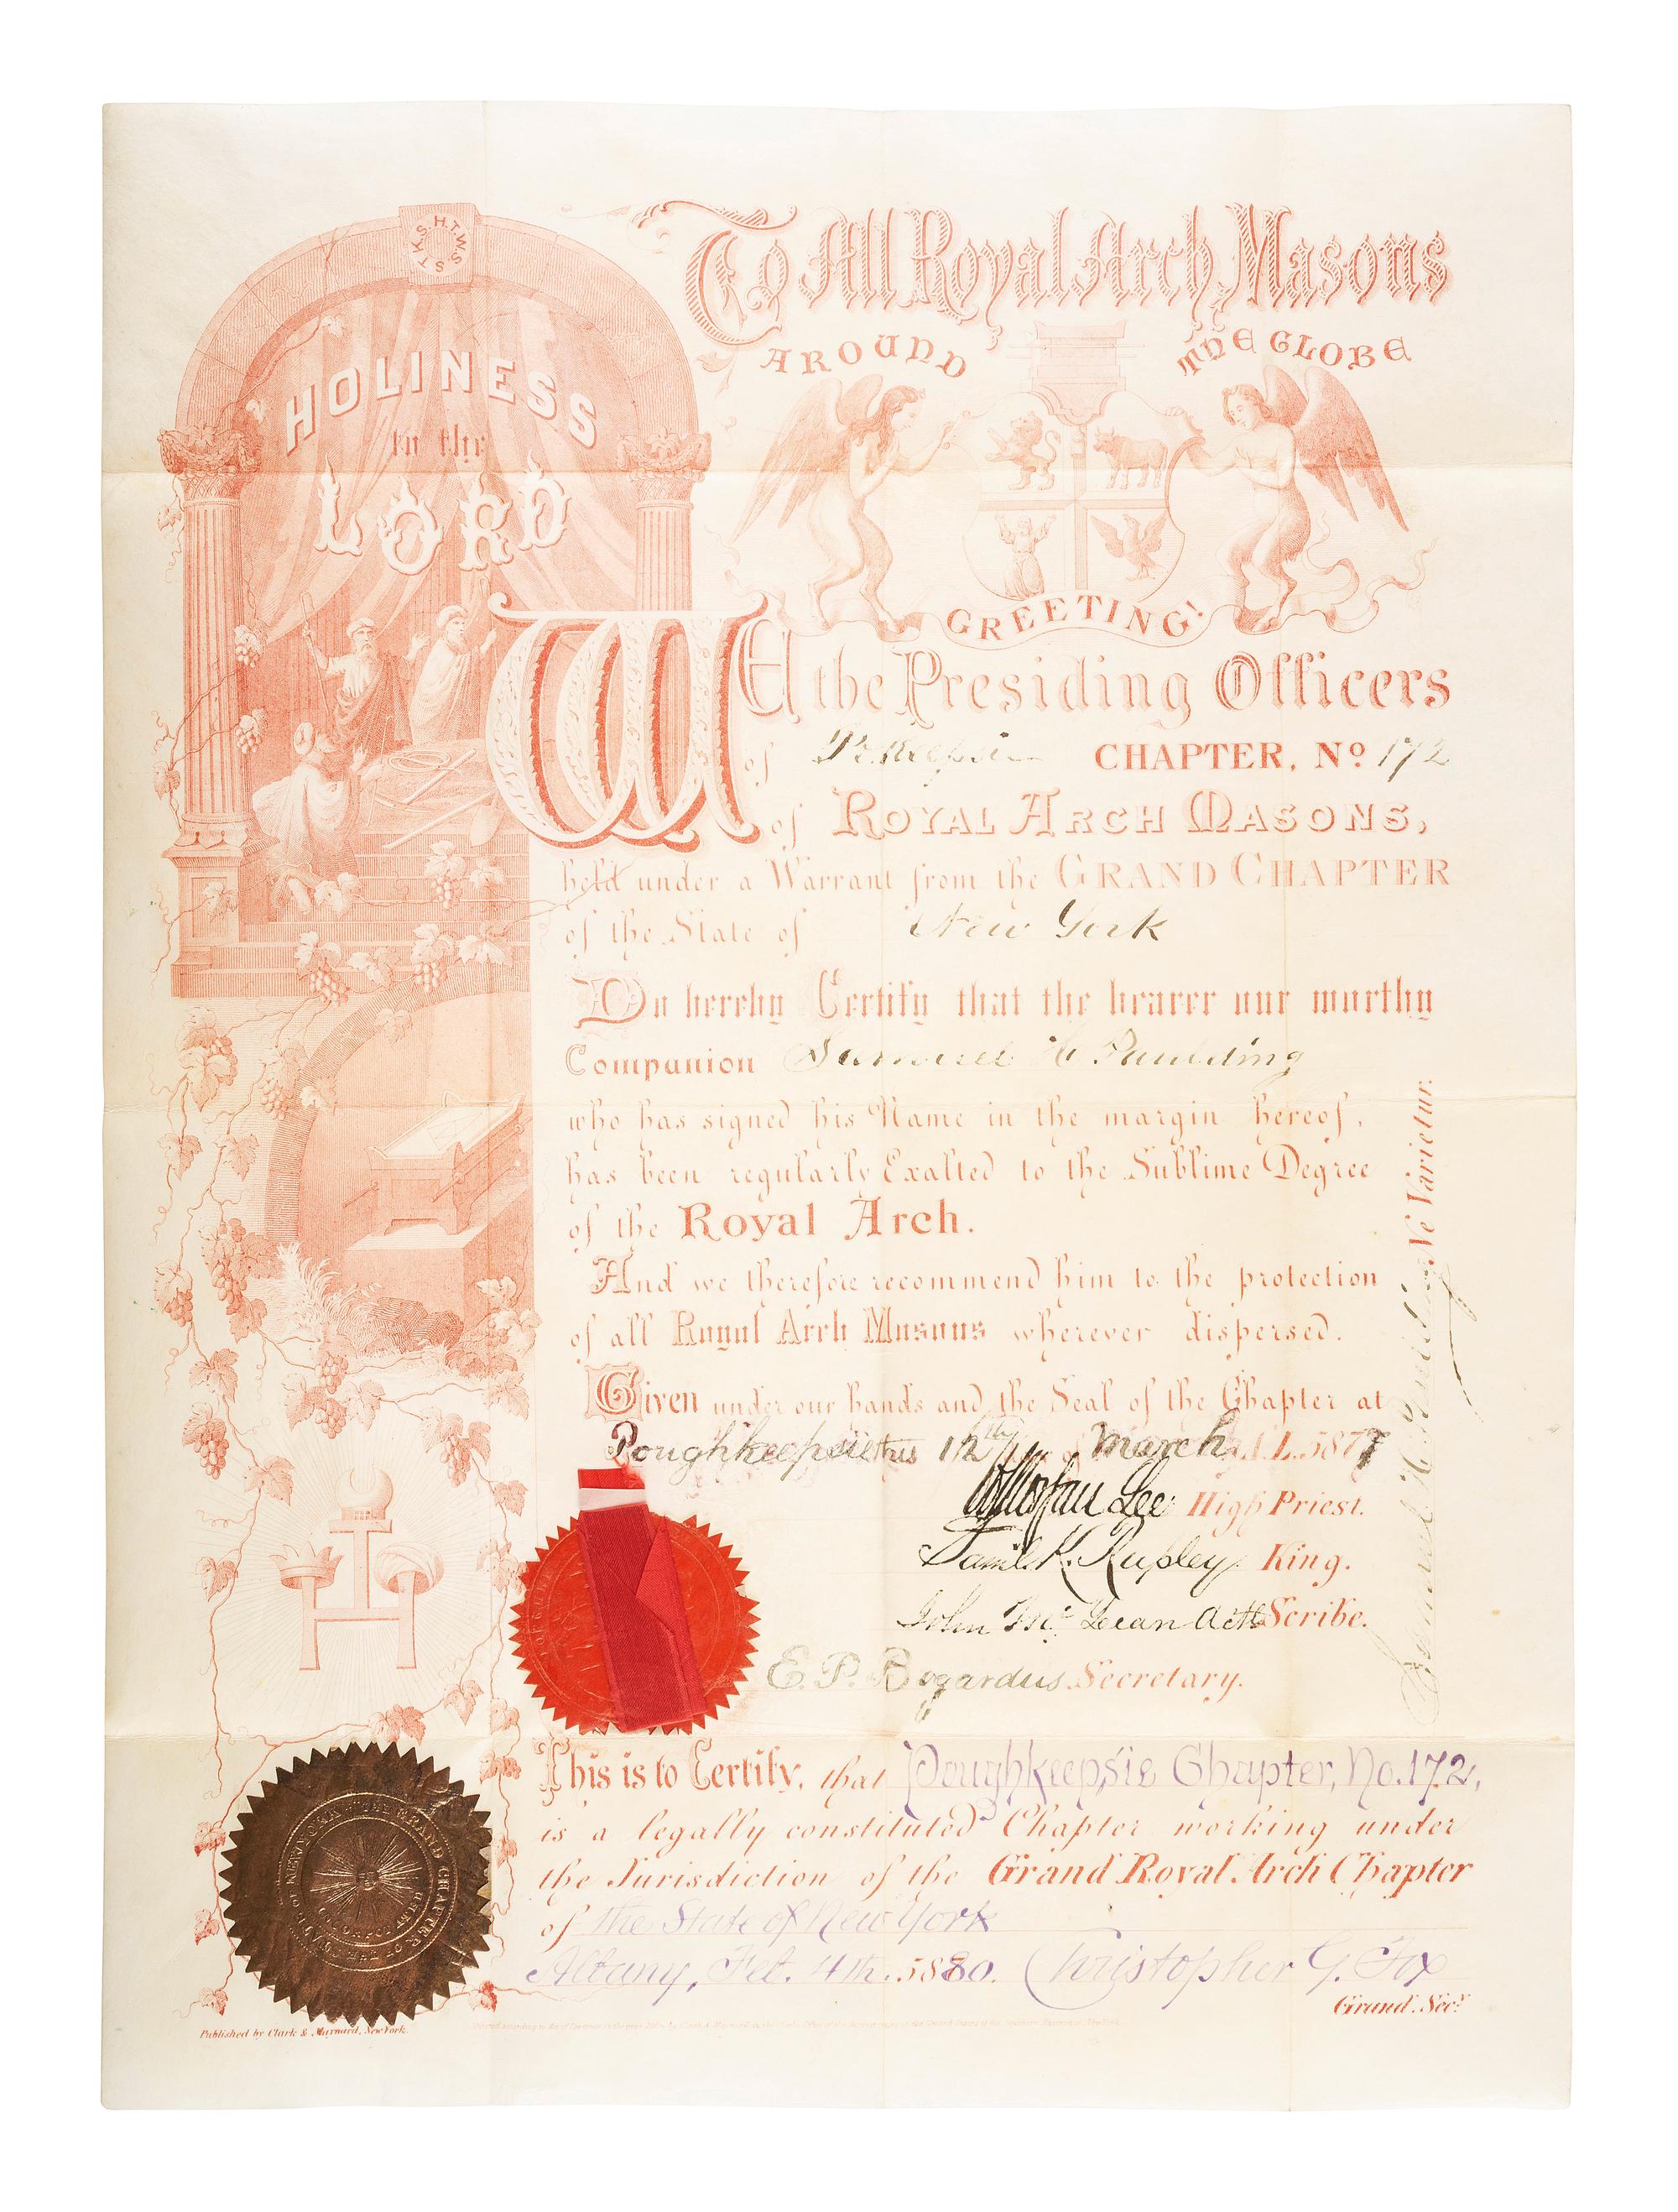 H.T.W.S.S.T.K.S.
HOLINESS
to the
LORD
To All Royal Arch Masons
AROUND THE GLOBE
GREETING!
WE the Presiding Officers
of Po'keepsie CHAPTER, No 172
of ROYAL ARCH MASONS,
held under a Warrant from the GRAND CHAPTER
of the State of New York
Do hereby Certify that the bearer our worthy
Companion Samuel H Paulding
who has signed his Name in the margin hereof,
has been regularly Exalted to the Sublime Degree
of the Royal Arch.
And we therefore recommend him to the protection
of all Royal Arch Masons wherever dispersed.
Given under our hands and the Seal of the Chapter at
Poughkeepsie this 12th March A.L. 5877
Lee High Priest.
Saml. K. Rupley King.
John Mc Lean Actg Scribe.
E. P. Bogardus Secretary.
Ne Varietur.
Samuel H Paulding
This is to Certify, that Poughkeepsie Chapter, No. 172,
is a legally constituted Chapter working under
the Jurisdiction of the Grand Royal Arch Chapter
of the State of New York
Albany, Feb. 4th. 5880. Christopher G. Fox
Grand Secy.
GRAND CHAPTER OF THE STATE OF NEW YORK
Published by Clark & Maynard, New York.